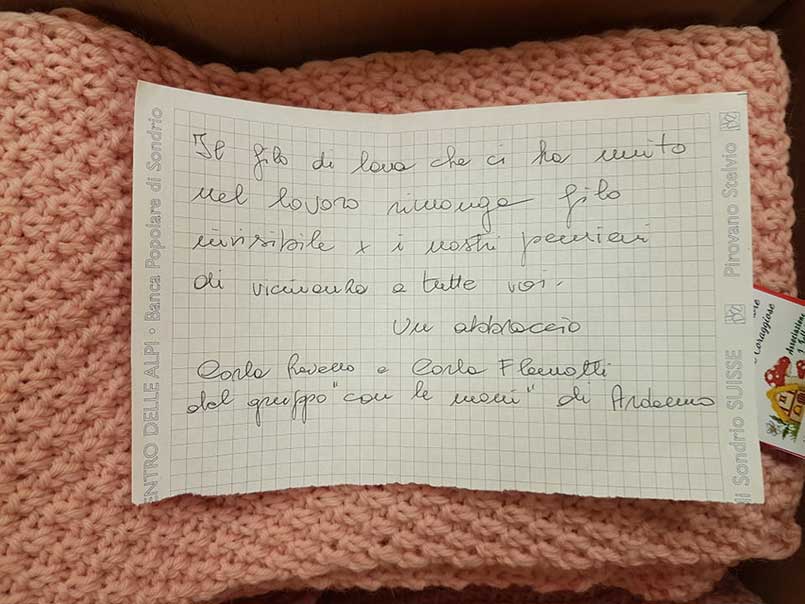 Il filo di lana che ci ha unito
nel lavoro rimanga filo
invisibile x i nostri pensieri
di vicinanza a tutte voi.
Un abbraccio
Carla e Carla
dal gruppo "con le mani" di Ardenno
ENTRO DELLE ALPI • Banca Popolare di Sondrio
di Sondrio SUISSE Pirovano Stelvio
Coraggiose
Associazione